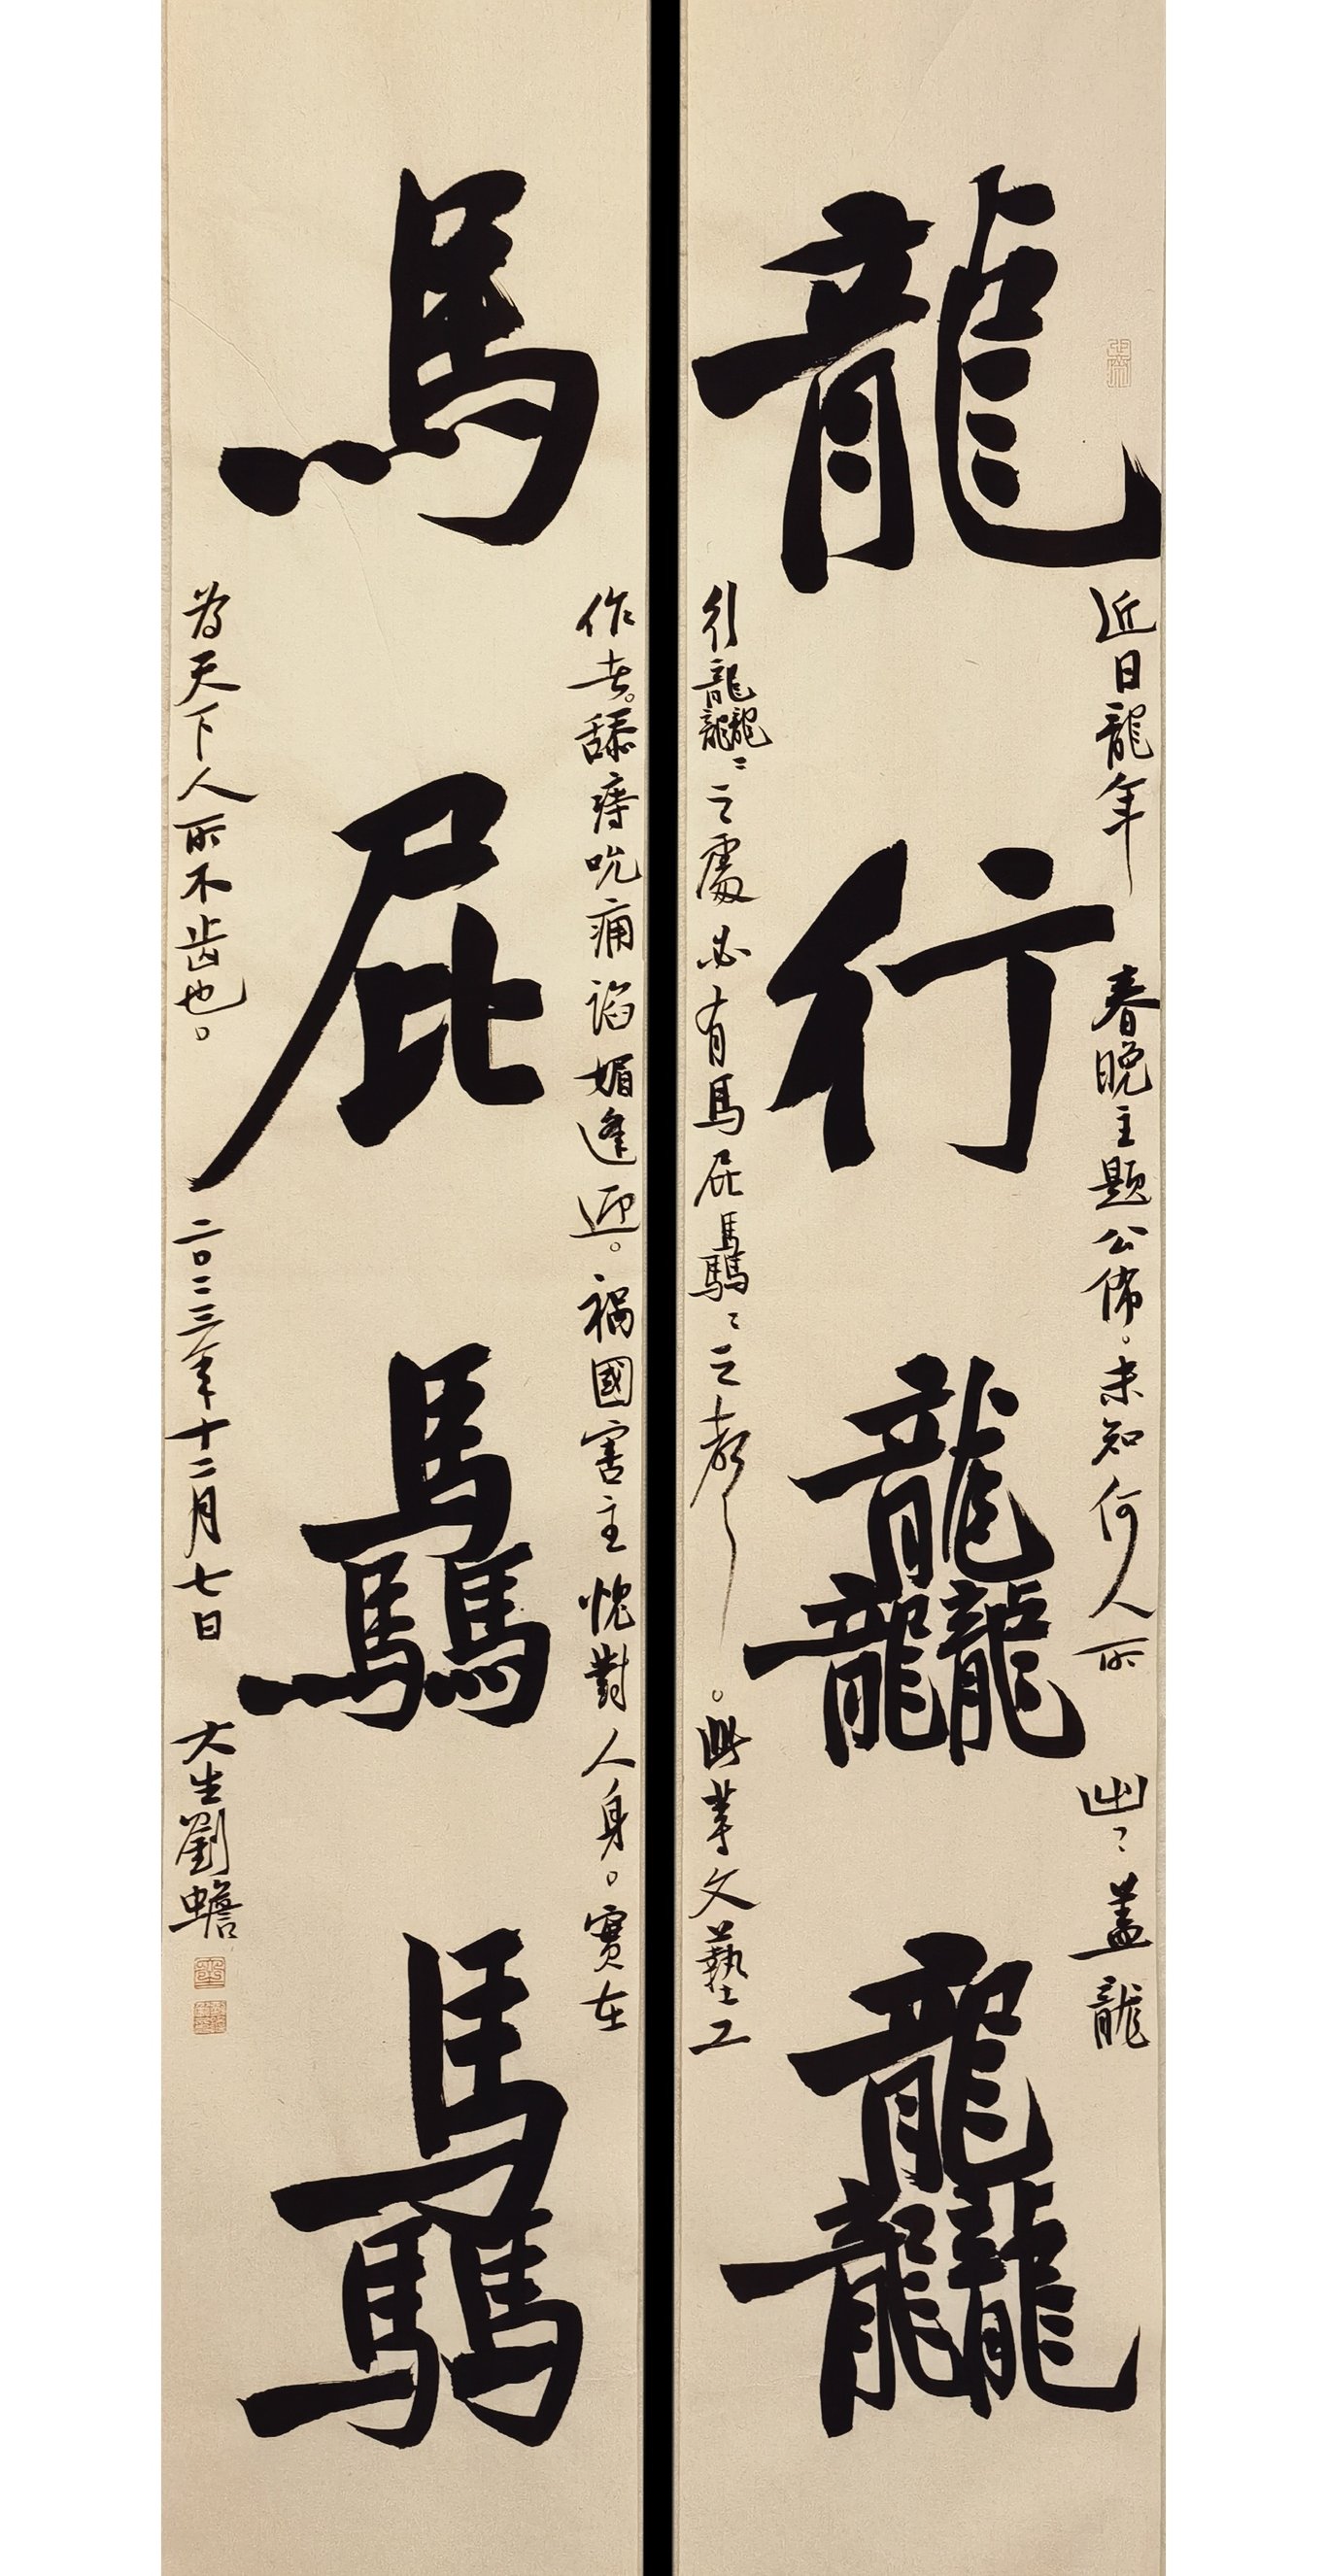 龍行龘龘
近日龍年春晚主題公佈。未知何人所出〻蓋龍
行龘〻之處必有馬屁驫〻之聲。此等文藝工
馬屁驫驫
作者。舔痔吮癰諂媚逢迎。禍國害主愧對人身。實在
為天下人所不齒也。
二〇二三年十二月七日
大生劉蟾